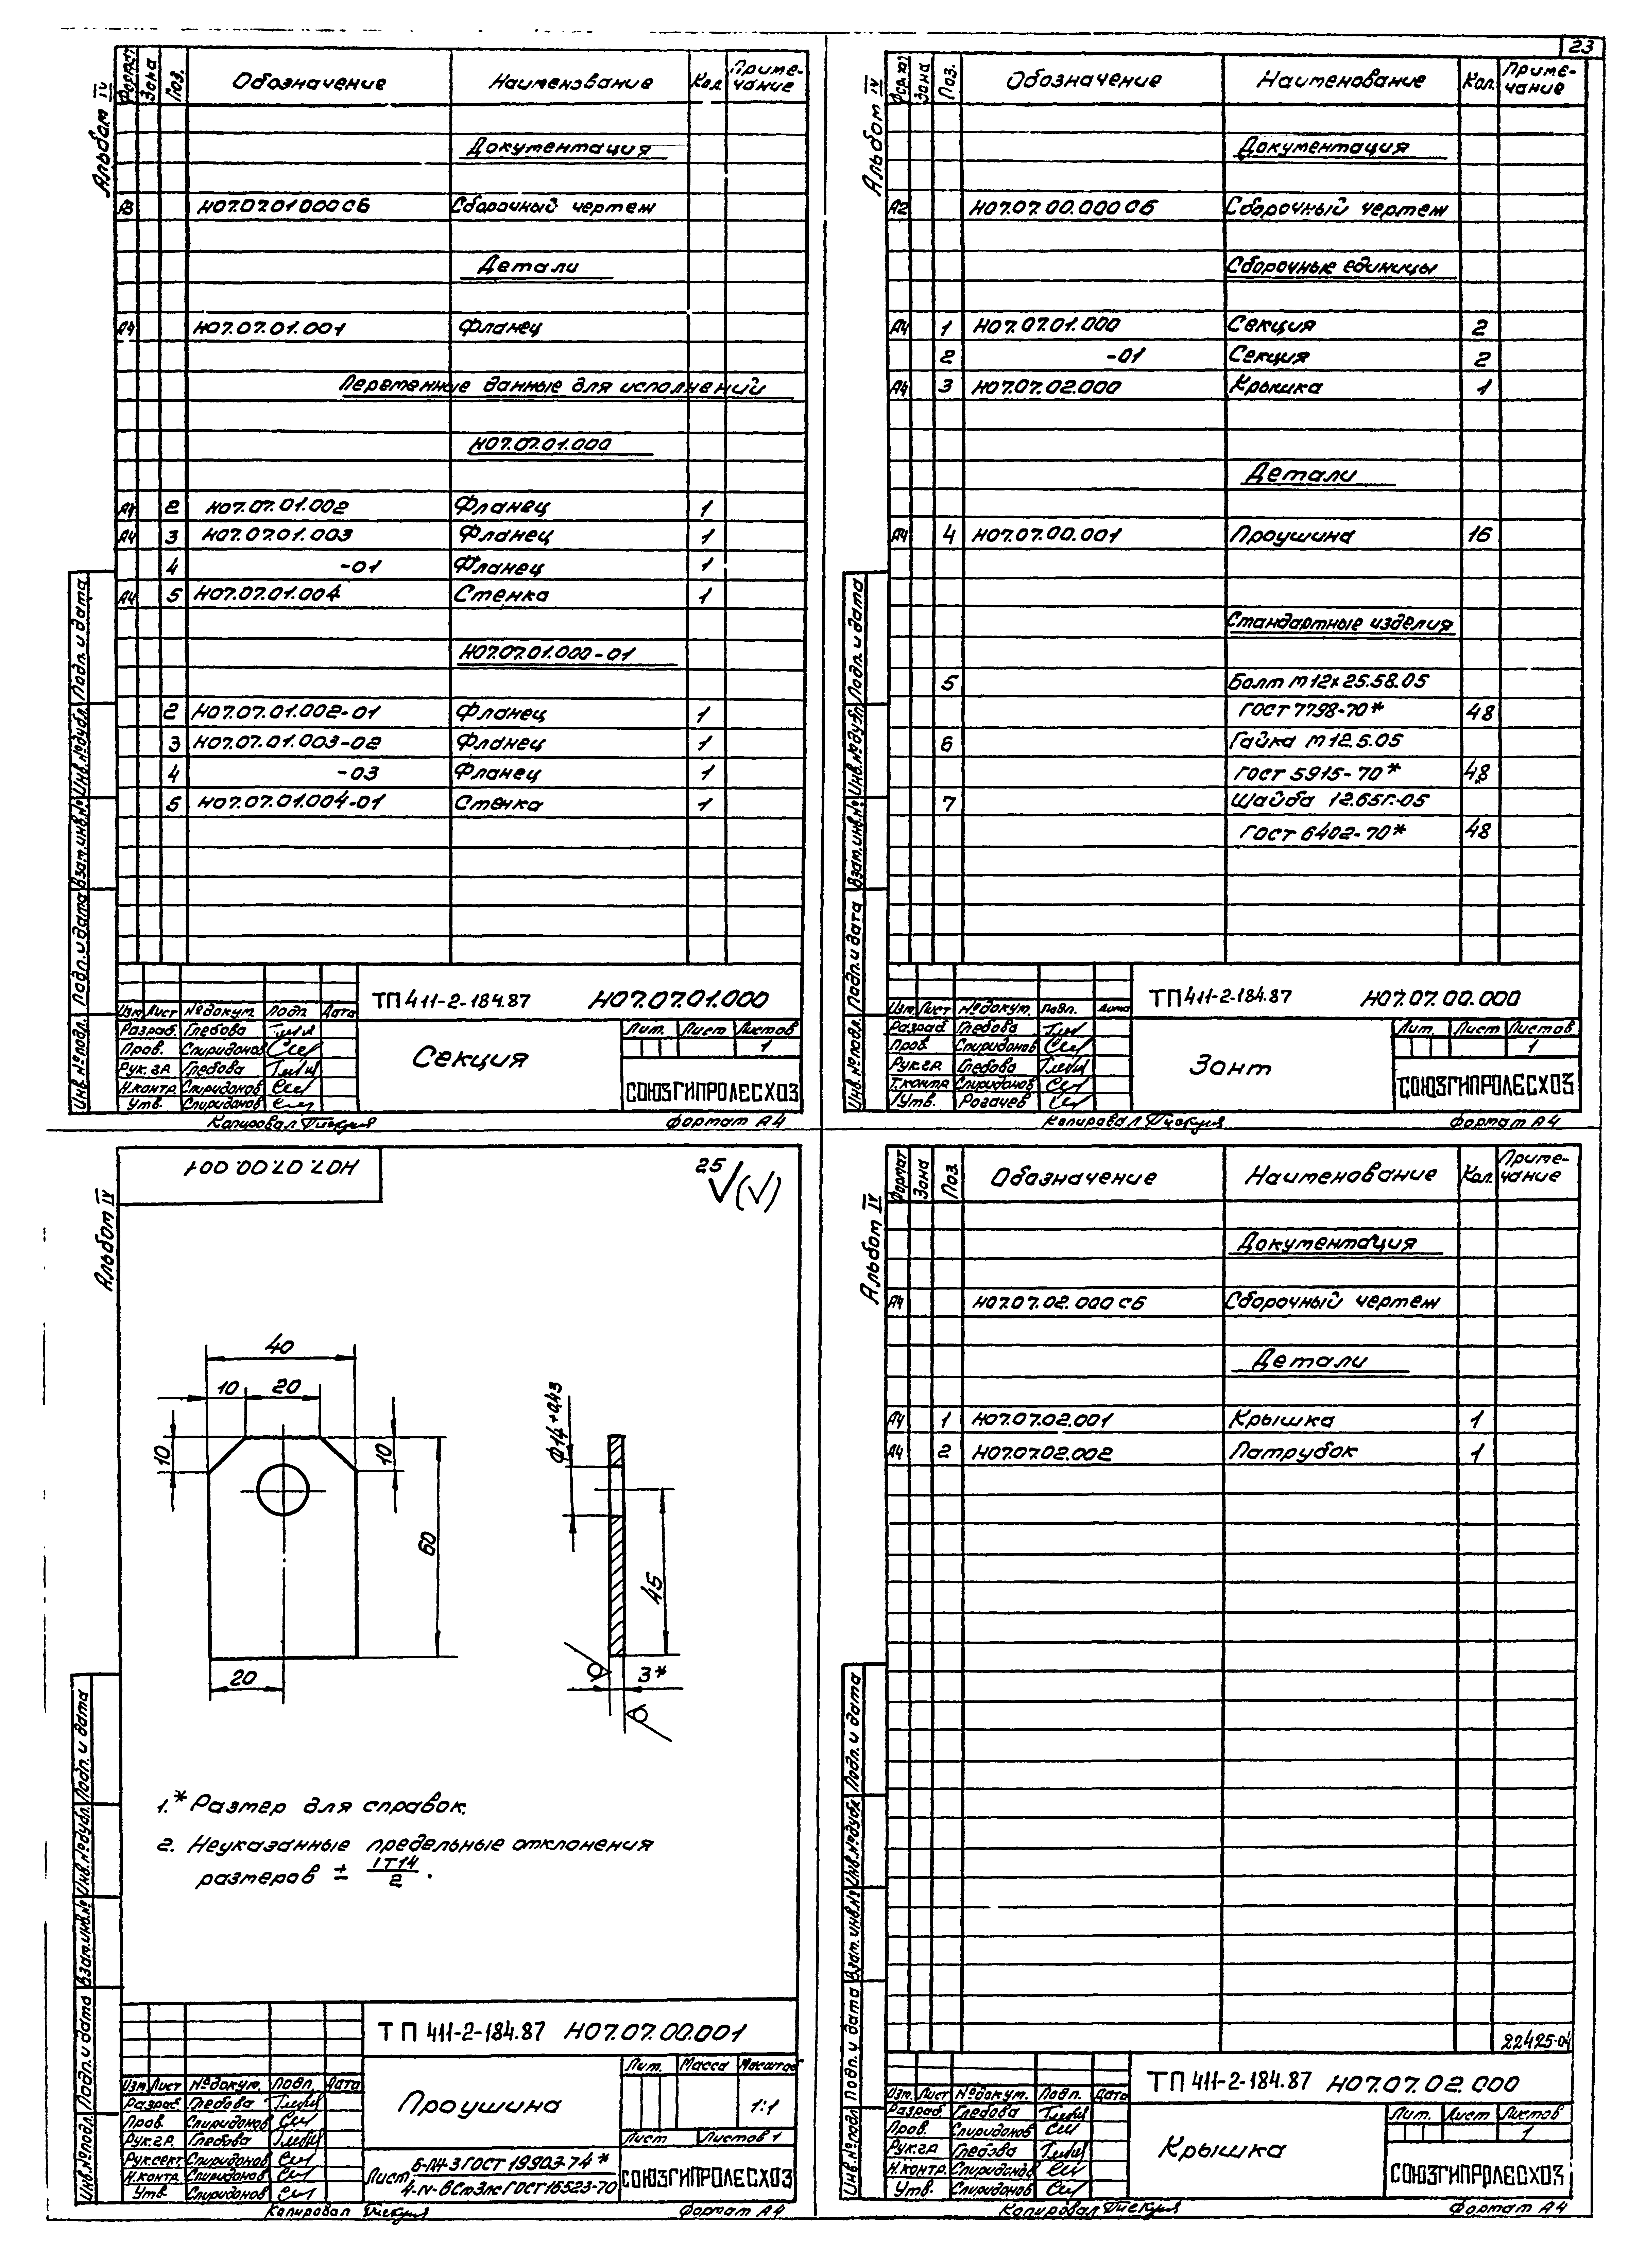 23
Альбом IV
Формат Зона Поз. Обозначение Наименование Кол. Приме-
чание
Документация
А3 Н07.07.01 000 СБ Сборочный чертеж
Детали
А4 Н07.07.01.001 Фланец
Переменные данные для исполнений
Н07.07.01.000
А4 2 Н07.07.01.002 Фланец 1
А4 3 Н07.07.01.003 Фланец 1
4 -01 Фланец 1
А4 5 Н07.07.01.004 Стенка 1
Н07.07.01.000-01
2 Н07.07.01.002-01 Фланец 1
3 Н07.07.01.003-02 Фланец 1
4 -03 Фланец 1
5 Н07.07.01.004-01 Стенка 1
Инв. № подл. Подп. и дата Взам. инв. № Инв. № дубл. Подп. и дата
ТП 411-2-184.87 Н07.07.01.000
Изм. Лист № докум. Подп. Дата
Разраб. Глебова
Пров. Спиридонов
Рук. гр. Глебова
Н.контр. Спиридонов
Утв. Спиридонов
Секция
Лит. Лист Листов
1
СОЮЗГИПРОЛЕСХОЗ
Копировал
Формат А4
Альбом IV
Формат Зона Поз. Обозначение Наименование Кол. Приме-
чание
Документация
А2 Н07.07.00.000 СБ Сборочный чертеж
Сборочные единицы
А4 1 Н07.07.01.000 Секция 2
2 -01 Секция 2
А4 3 Н07.07.02.000 Крышка 1
Детали
А4 4 Н07.07.00.001 Проушина 16
Стандартные изделия
5 Болт М12х25.58.05
ГОСТ 7798-70* 48
6 Гайка М12.5.05
ГОСТ 5915-70* 48
7 Шайба 12.65Г.05
ГОСТ 6402-70* 48
Инв. № подл. Подп. и дата Взам. инв. № Инв. № дубл. Подп. и дата
ТП 411-2-184.87 Н07.07.00.000
Изм. Лист № докум. Подп. Дата
Разраб. Глебова
Пров. Спиридонов
Рук. гр. Глебова
Т.контр. Спиридонов
Утв. Рогачев
Зонт
Лит. Лист Листов
1
СОЮЗГИПРОЛЕСХОЗ
Копировал
Формат А4
Альбом IV
Н07.07.00.001
25 √(√)
40
10 20
10
10
60
20
Ф14+0,43
45
3*
1.* Размер для справок.
2. Неуказанные предельные отклонения
размеров ± IT14/2.
Инв. № подл. Подп. и дата Взам. инв. № Инв. № дубл. Подп. и дата
ТП 411-2-184.87 Н07.07.00.001
Изм. Лист № докум. Подп. Дата
Разраб. Глебова
Пров. Спиридонов
Рук. гр. Глебова
Рук. сект. Спиридонов
Н.контр. Спиридонов
Утв. Спиридонов
Проушина
Лит. Масса Масштаб
1:1
Лист Листов 1
Лист Б-ПН-3 ГОСТ 19903-74*
4-IV-ВСт3пс ГОСТ 16523-70
СОЮЗГИПРОЛЕСХОЗ
Копировал
Формат А4
Альбом IV
Формат Зона Поз. Обозначение Наименование Кол. Приме-
чание
Документация
А4 Н07.07.02.000 СБ Сборочный чертеж
Детали
А4 1 Н07.07.02.001 Крышка 1
А4 2 Н07.07.02.002 Патрубок 1
22425-04
Инв. № подл. Подп. и дата Взам. инв. № Инв. № дубл. Подп. и дата
ТП 411-2-184.87 Н07.07.02.000
Изм. Лист № докум. Подп. Дата
Разраб. Глебова
Пров. Спиридонов
Рук. гр. Глебова
Н.контр. Спиридонов
Утв. Спиридонов
Крышка
Лит. Лист Листов
1
СОЮЗГИПРОЛЕСХОЗ
Копировал
Формат А4